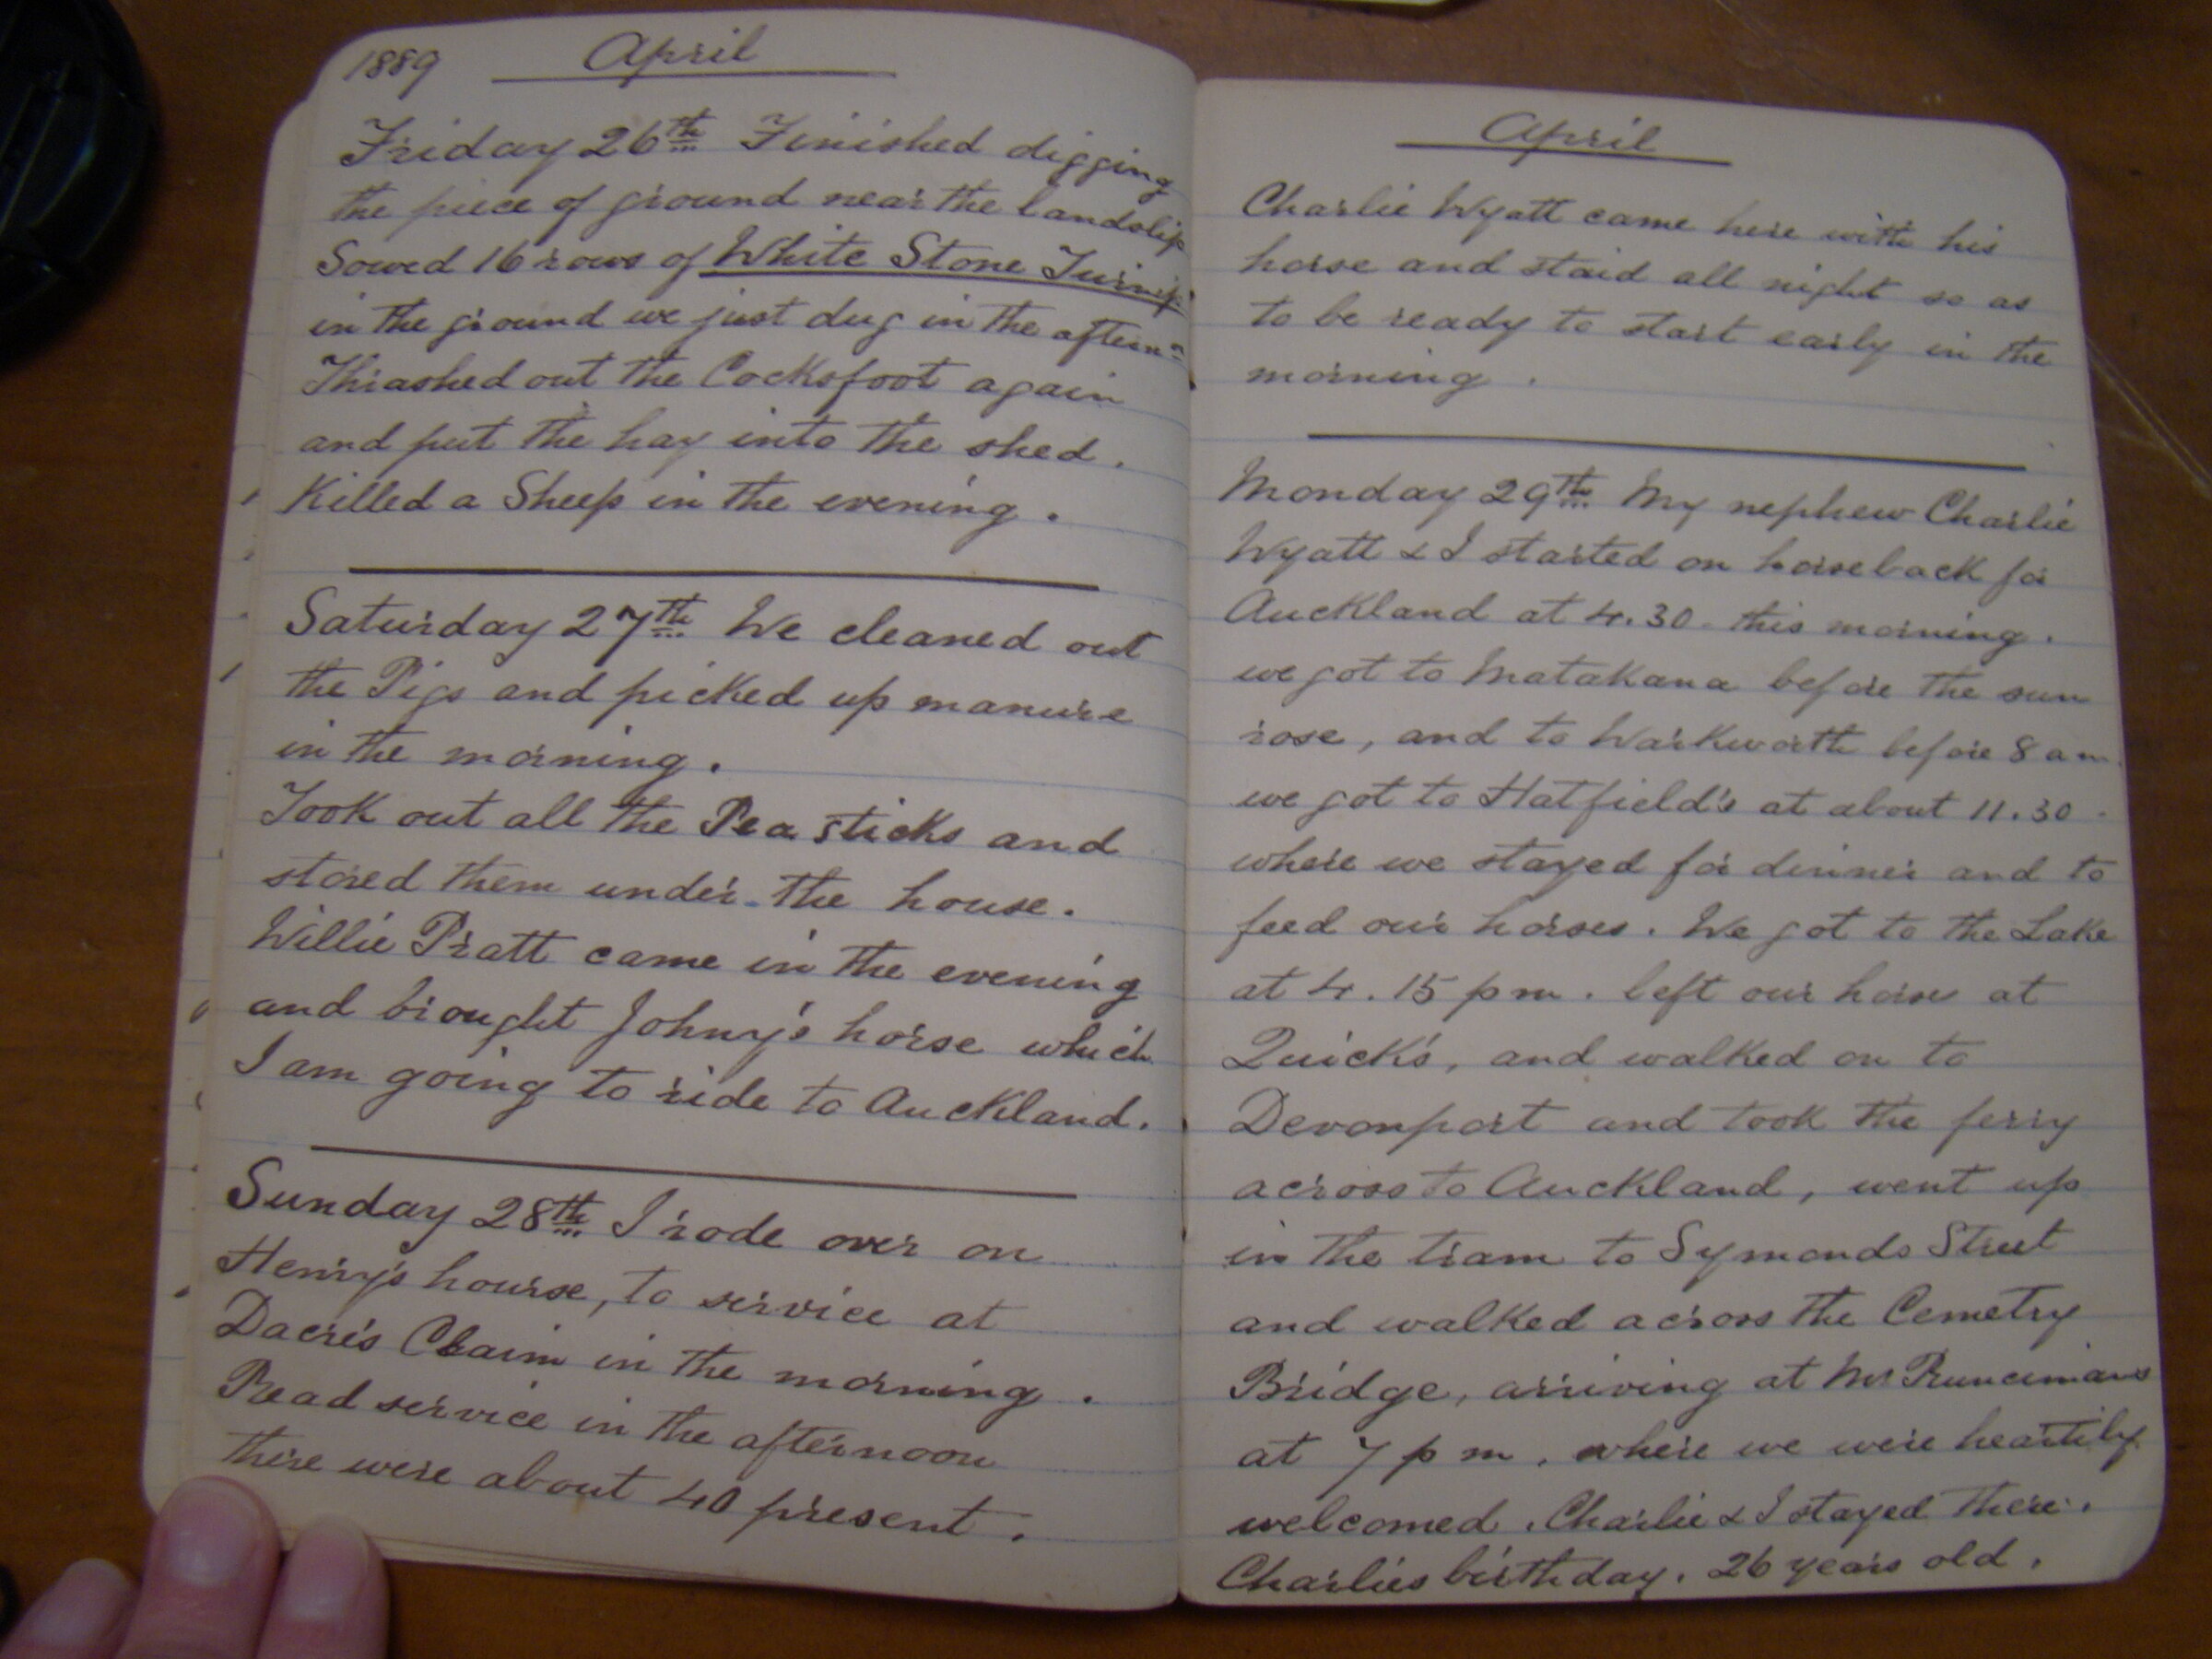 1889 April
Friday 26th Finished digging
the piece of ground near the landslip
Sowed 16 rows of White Stone Turnip
in the ground we just dug in the aftern n
Thrashed out the Cocksfoot again
and put the hay into the shed.
Killed a Sheep in the evening.
Saturday 27th We cleaned out
the Pigs and picked up manure
in the morning.
Took out all the Pea sticks and
stored them under the house.
Willie Pratt came in the evening
and brought Johny's horse which
I am going to ride to Auckland.
Sunday 28th I rode over on
Henry's hourse, to service at
Dacre's Claim in the morning.
Read service in the afternoon
there were about 40 present.
April
Charlie Wyatt came here with his
horse and staid all night so as
to be ready to start early in the
morning.
Monday 29th My nephew Charlie
Wyatt & I started on horseback for
Auckland at 4.30 this morning.
we got to Matakana before the sun
rose, and to Warkworth before 8 am.
we got to Hatfield's at about 11.30
where we stayed for dinner and to
feed our horses. We got to the Lake
at 4.15 pm. left our horses at
Quick's, and walked on to
Devonport and took the ferry
across to Auckland, went up
in the tram to Symonds Street
and walked across the Cemetry
Bridge, arriving at Mr Runcimans
at 7 pm, where we were heartily
welcomed. Charlie & I stayed there.
Charlies birthday. 26 years old.